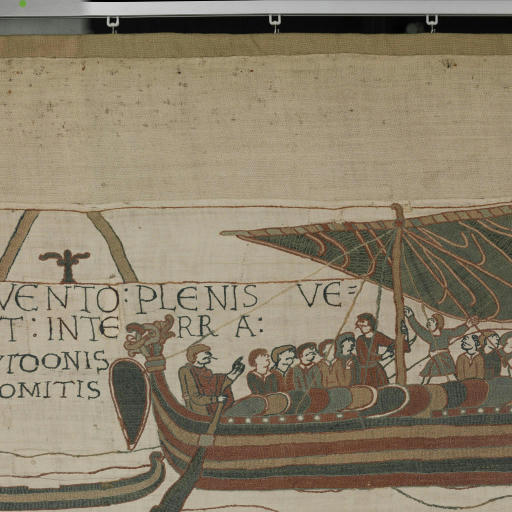 VENTO: PLENIS VE=
T: IN TE RR A:
VIDONIS
OMITIS